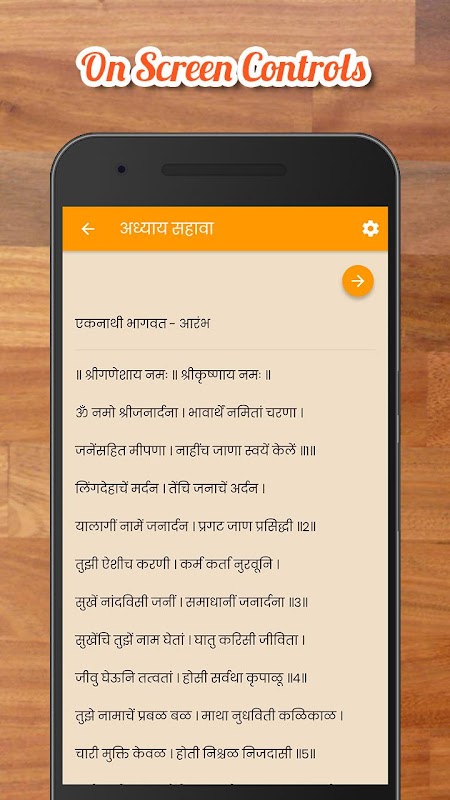 On Screen Controls
अध्याय सहावा
एकनाथी भागवत - आरंभ
॥ श्रीगणेशाय नमः ॥ श्रीकृष्णाय नमः ॥
ॐ नमो श्रीजनार्दना । भावार्थें नमितां चरणा ।
जनेंसहित मीपणा । नाहींच जाणा स्वयें केलें ॥१॥
लिंगदेहाचें मर्दन । तेंचि जनाचें अर्दन ।
यालागीं नामें जनार्दन । प्रगट जाण प्रसिद्धी ॥२॥
तुझी ऐशीच करणी । कर्म कर्ता नुरवूनि ।
सुखें नांदविसी जनीं । समाधानीं जनार्दना ॥३॥
सुखेंचि तुझें नाम घेतां । घातु करिसी जीविता ।
जीवु घेऊनि तत्वतां । होसी सर्वथा कृपाळू ॥४॥
तुझे नामाचें प्रबळ बळ । माथा नुधविती कळिकाळ ।
चारी मुक्ति केवळ । होती निश्चळ निजदासी ॥५॥